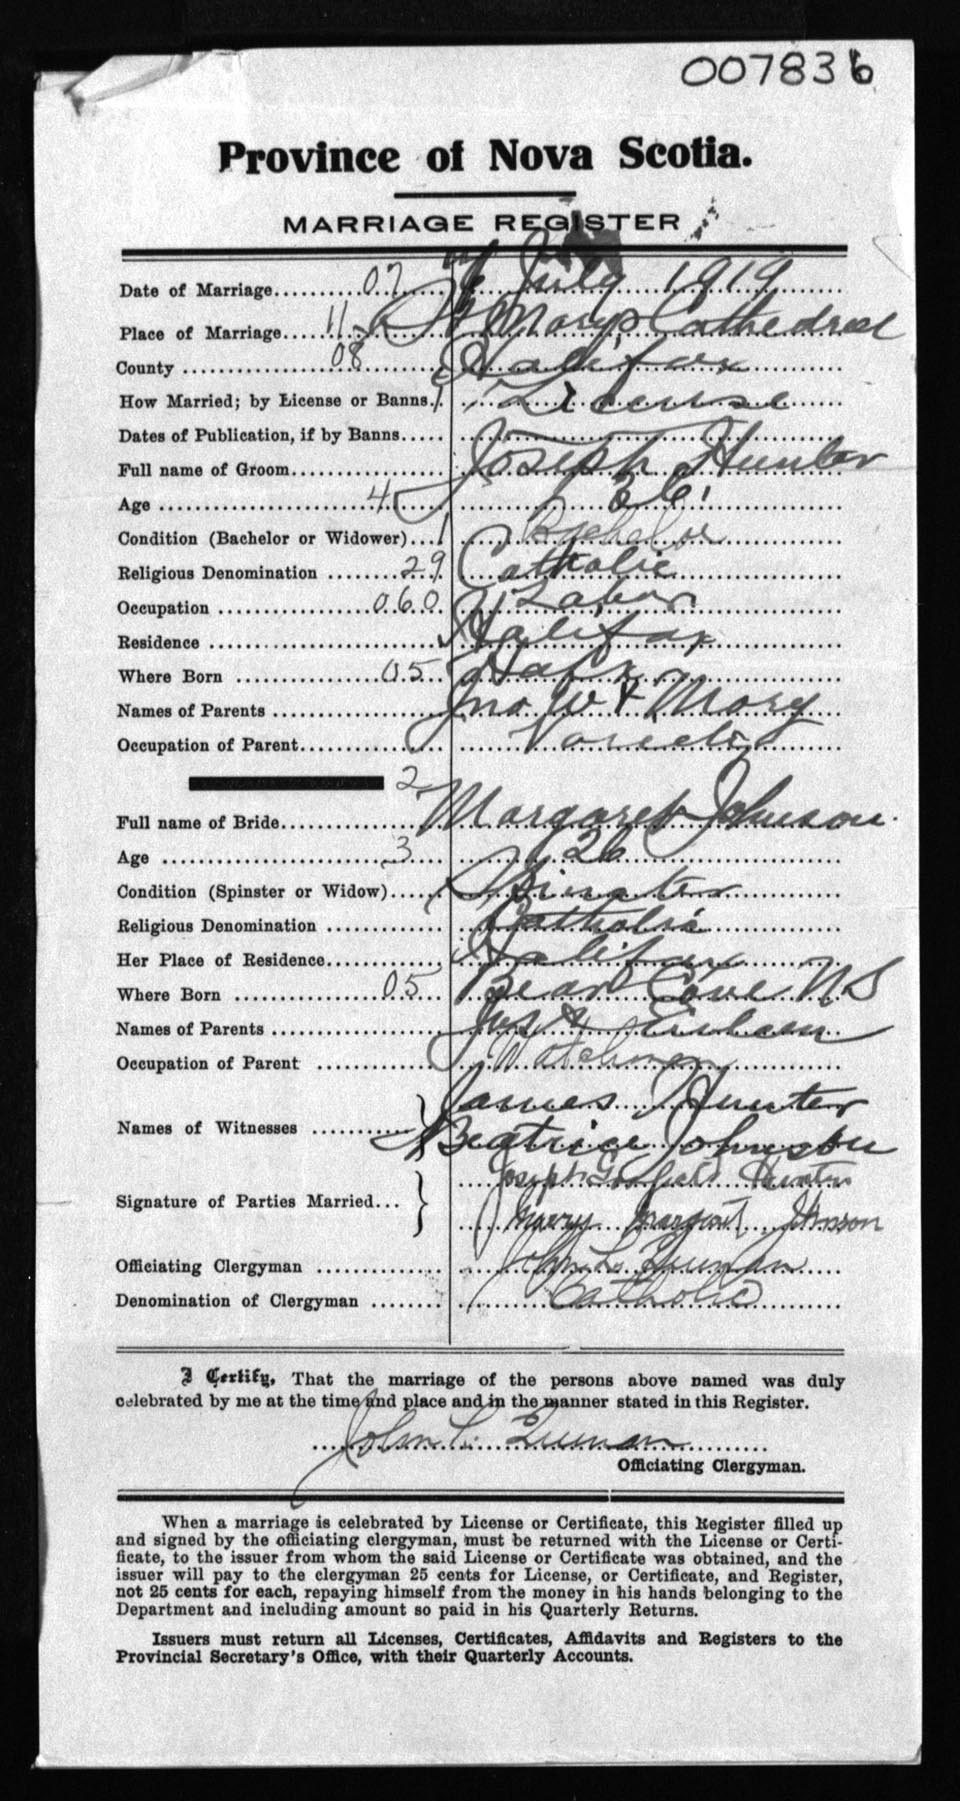 007836
Province of Nova Scotia.
MARRIAGE REGISTER
Date of Marriage..........07...... July 1919
Place of Marriage.....11.. St Mary's Cathedral
County ..................08...... Halifax
How Married; by License or Banns.1. License
Dates of Publication, if by Banns.....
Full name of Groom............... Joseph Hunter
Age .......................4.... 36
Condition (Bachelor or Widower)...1 Bachelor
Religious Denomination ........29. Catholic
Occupation ................060. Labor
Residence ........................ Halifax
Where Born ...............05... Hafx
Names of Parents ................. Jno W & Mary
Occupation of Parent..............
2
Full name of Bride................ Margaret Johnson
Age .......................3.... 26
Condition (Spinster or Widow)..... Spinster
Religious Denomination ........... Catholic
Her Place of Residence............ Halifax
Where Born ...............05 Bear Cove NS
Names of Parents ................. Jas &
Occupation of Parent ............. Watchman
James Hunter
Names of Witnesses .......... } Beatrice Johnson
Joseph Hunter
Signature of Parties Married... }
Mary Margaret Johnson
Officiating Clergyman ............ John L. Quinan
Denomination of Clergyman ........ Catholic
I Certify, That the marriage of the persons above named was duly
celebrated by me at the time and place and in the manner stated in this Register.
John L. Quinan
Officiating Clergyman.
When a marriage is celebrated by License or Certificate, this Register filled up
and signed by the officiating clergyman, must be returned with the License or Certi-
ficate, to the issuer from whom the said License or Certificate was obtained, and the
issuer will pay to the clergyman 25 cents for License, or Certificate, and Register,
not 25 cents for each, repaying himself from the money in his hands belonging to the
Department and including amount so paid in his Quarterly Returns.
Issuers must return all Licenses, Certificates, Affidavits and Registers to the
Provincial Secretary's Office, with their Quarterly Accounts.